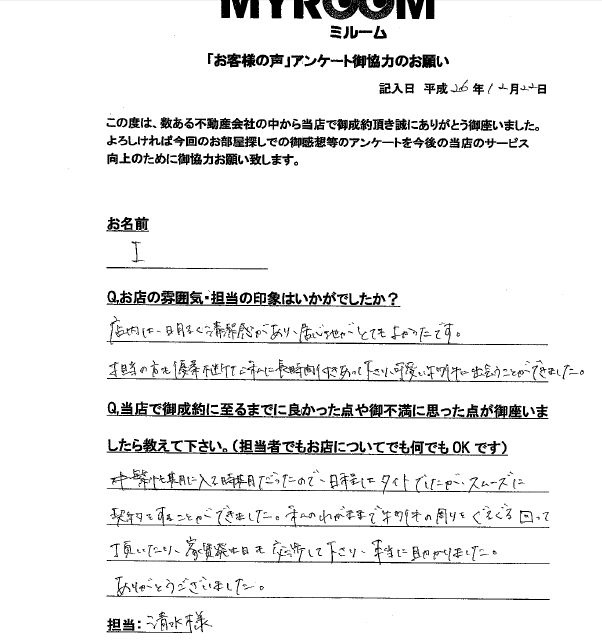 MYROOM
ミルーム
「お客様の声」アンケート御協力のお願い
記入日 平成 26 年 12 月 22 日
この度は、数ある不動産会社の中から当店で御成約頂き誠にありがとう御座いました。
よろしければ今回のお部屋探しでの御感想等のアンケートを今後の当店のサービス
向上のために御協力お願い致します。
お名前
I
Q.お店の雰囲気・担当の印象はいかがでしたか？
店内は、明るく清潔感があり、居心地がとてもよかったです。
担当の方も優柔不断な私に長時間付きあって下さり、可愛い物件に出会うことができました。
Q.当店で御成約に至るまでに良かった点や御不満に思った点が御座いま
したら教えて下さい。（担当者でもお店についてでも何でもOKです）
繁忙期に入る時期だったので、日程はタイトでしたが、スムーズに
契約をすることができました。私のわがままで物件の周りをぐるぐる回って
頂いたり、家賃発生日も交渉して下さり、本当に助かりました。
ありがとうございました。
担当：清水様